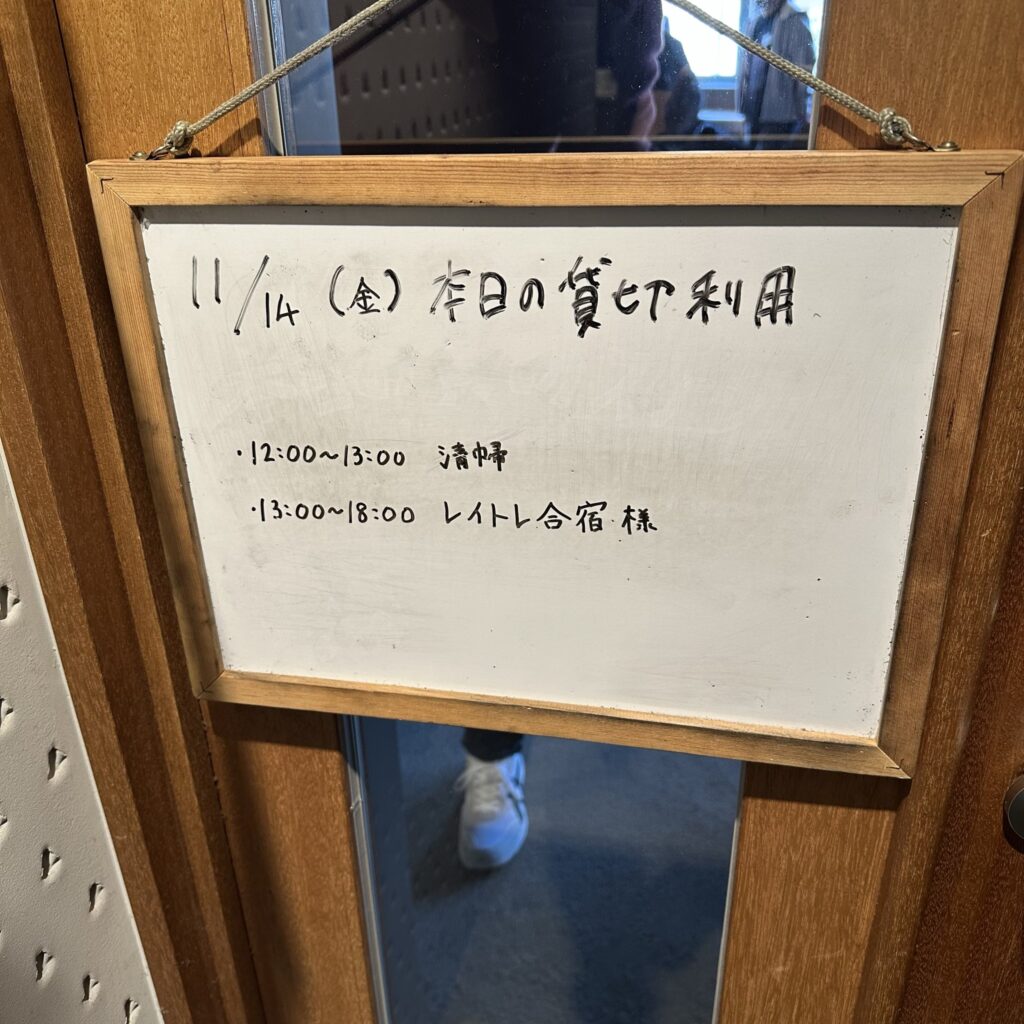 11/14（金）本日の貸切利用
・12:00〜13:00 清帰
・13:00〜18:00 レイトレ合宿様